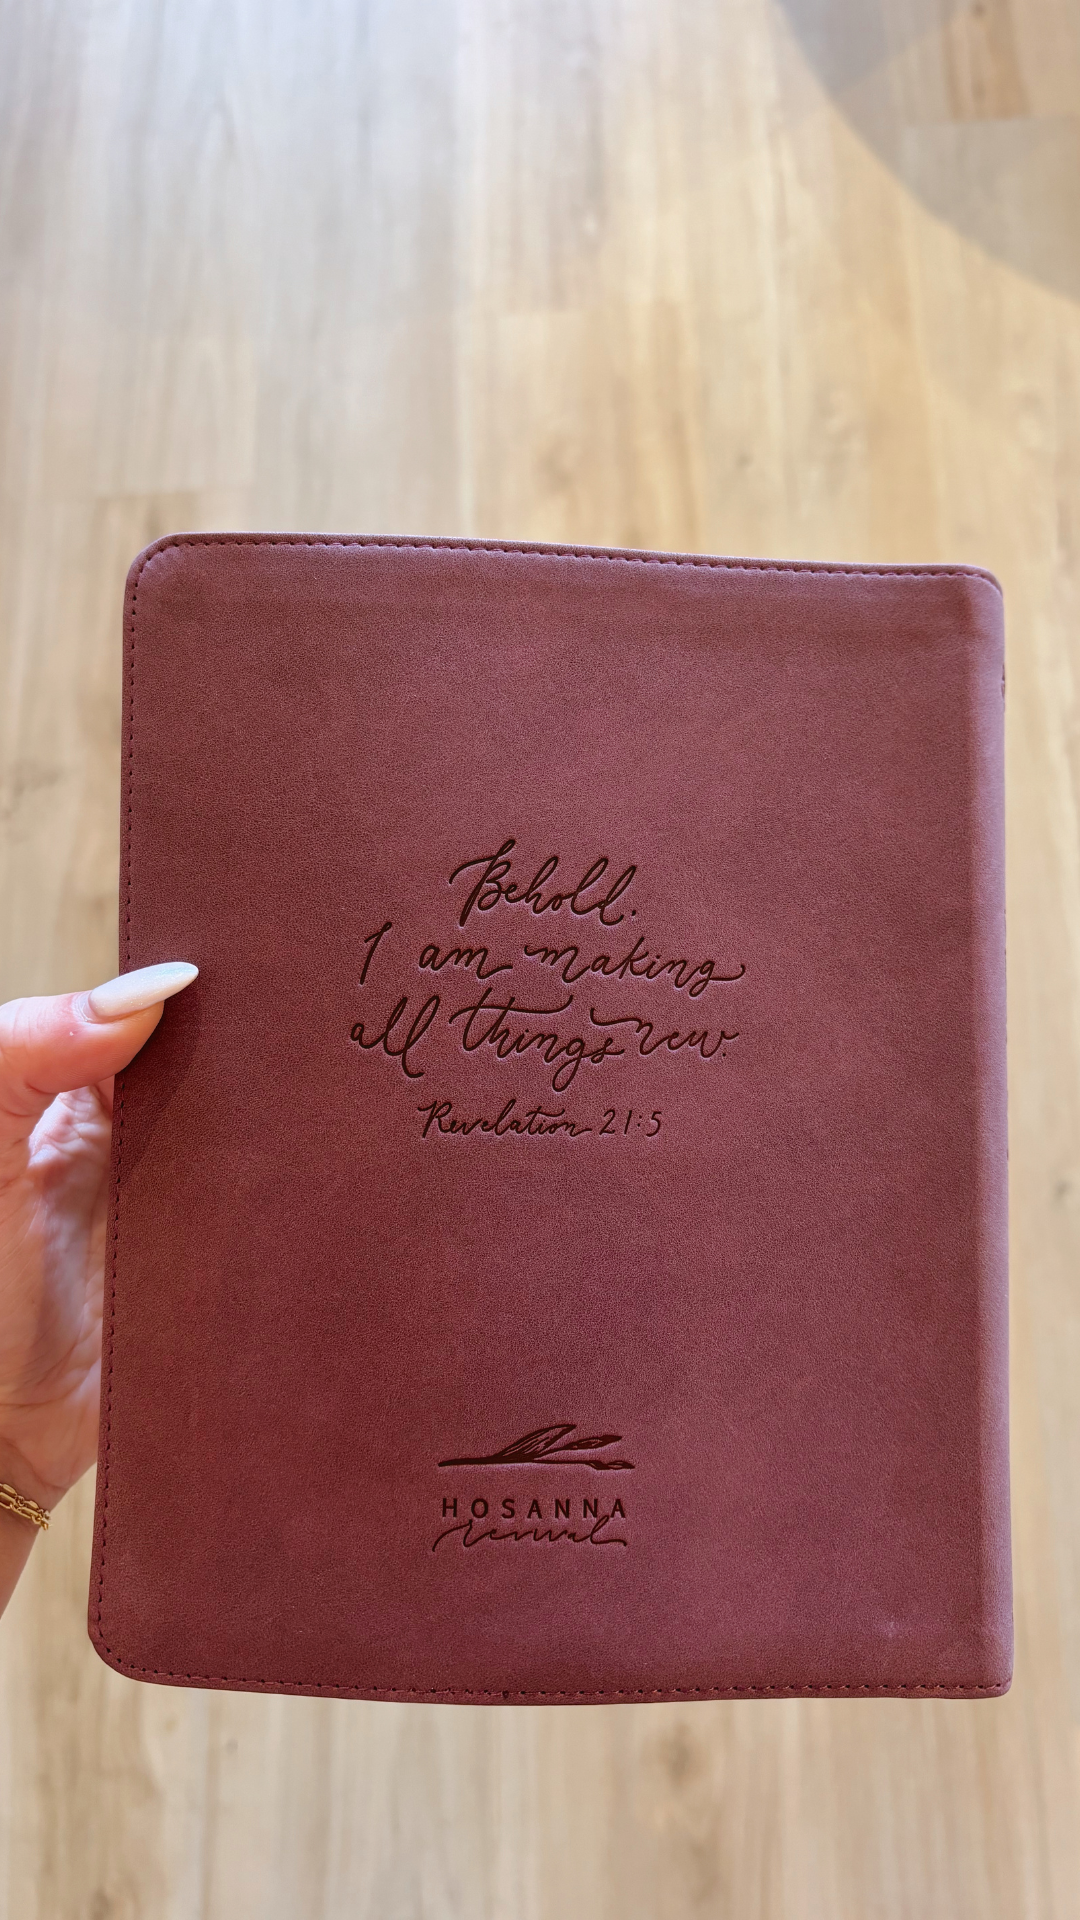 Behold.
I am making
all things new.
Revelation 21:5
HOSANNA
revival